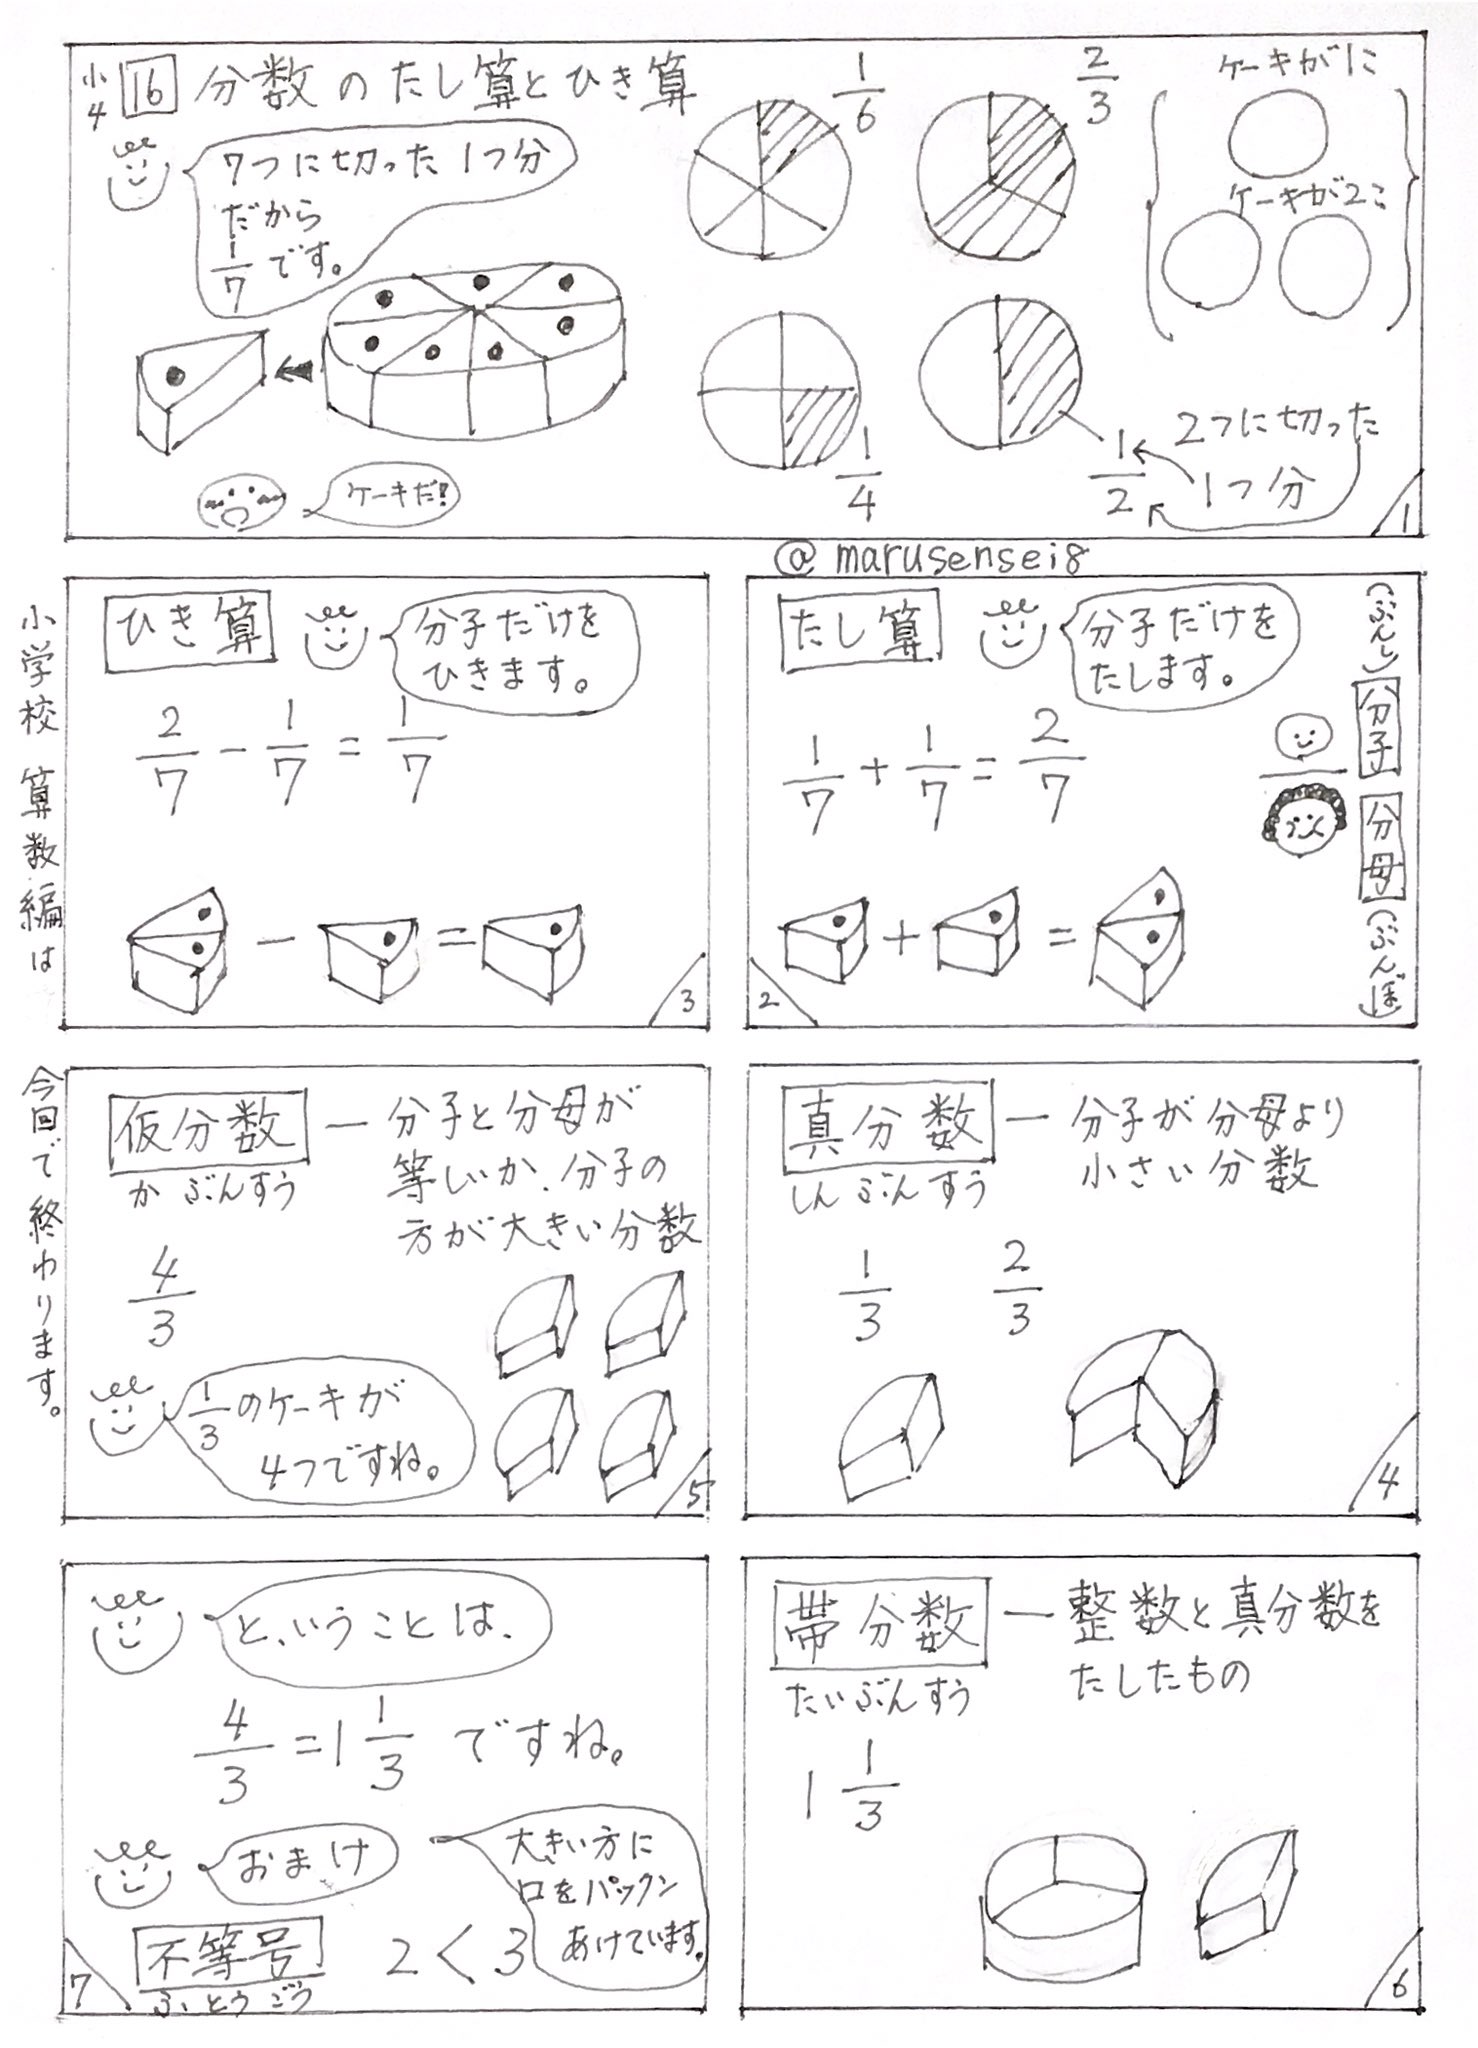 小4 16 分数のたし算とひき算
7つに切った1つ分
だから
1/7です。
ケーキだ!
1/6
2/3
1/4
1/2
2つに切った
1つ分
ケーキが1こ
ケーキが2こ
1
@marusensei8
たし算
分子だけを
たします。
1/7+1/7=2/7
+ =
(ぶんし)分子 分母(ぶんぼ)
2
ひき算
分子だけを
ひきます。
2/7-1/7=1/7
- =
3
真分数
しんぶんすう
ー分子が分母より
小さい分数
1/3 2/3
4
仮分数
かぶんすう
ー分子と分母が
等しいか、分子の
方が大きい分数
4/3
1/3のケーキが
4つですね。
5
帯分数
たいぶんすう
ー整数と真分数を
たしたもの
1 1/3
6
と、いうことは、
4/3=1 1/3 ですね。
おまけ
不等号
ふとうごう
2<3
大きい方に
口をパックン
あけています。
7
小学校 算数編は
今回で終わります。